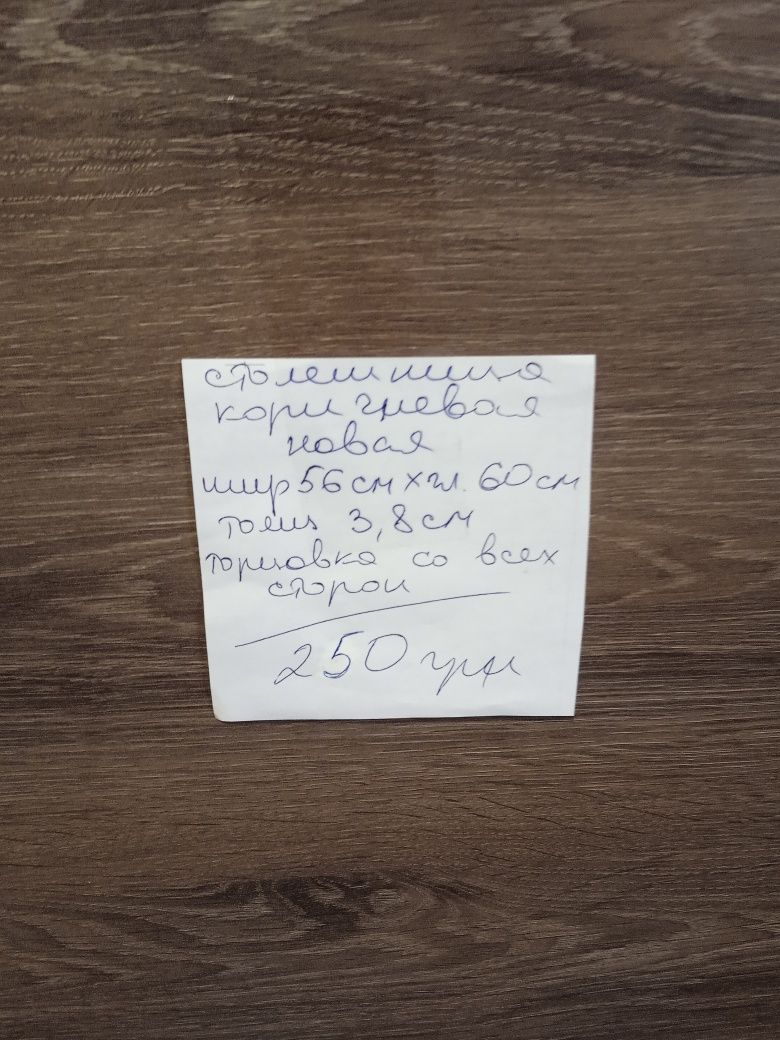 столешница
коричневая
новая
шир 56 см х гл. 60 см
толщ 3,8 см
торцовка со всех
сторон
250 грн